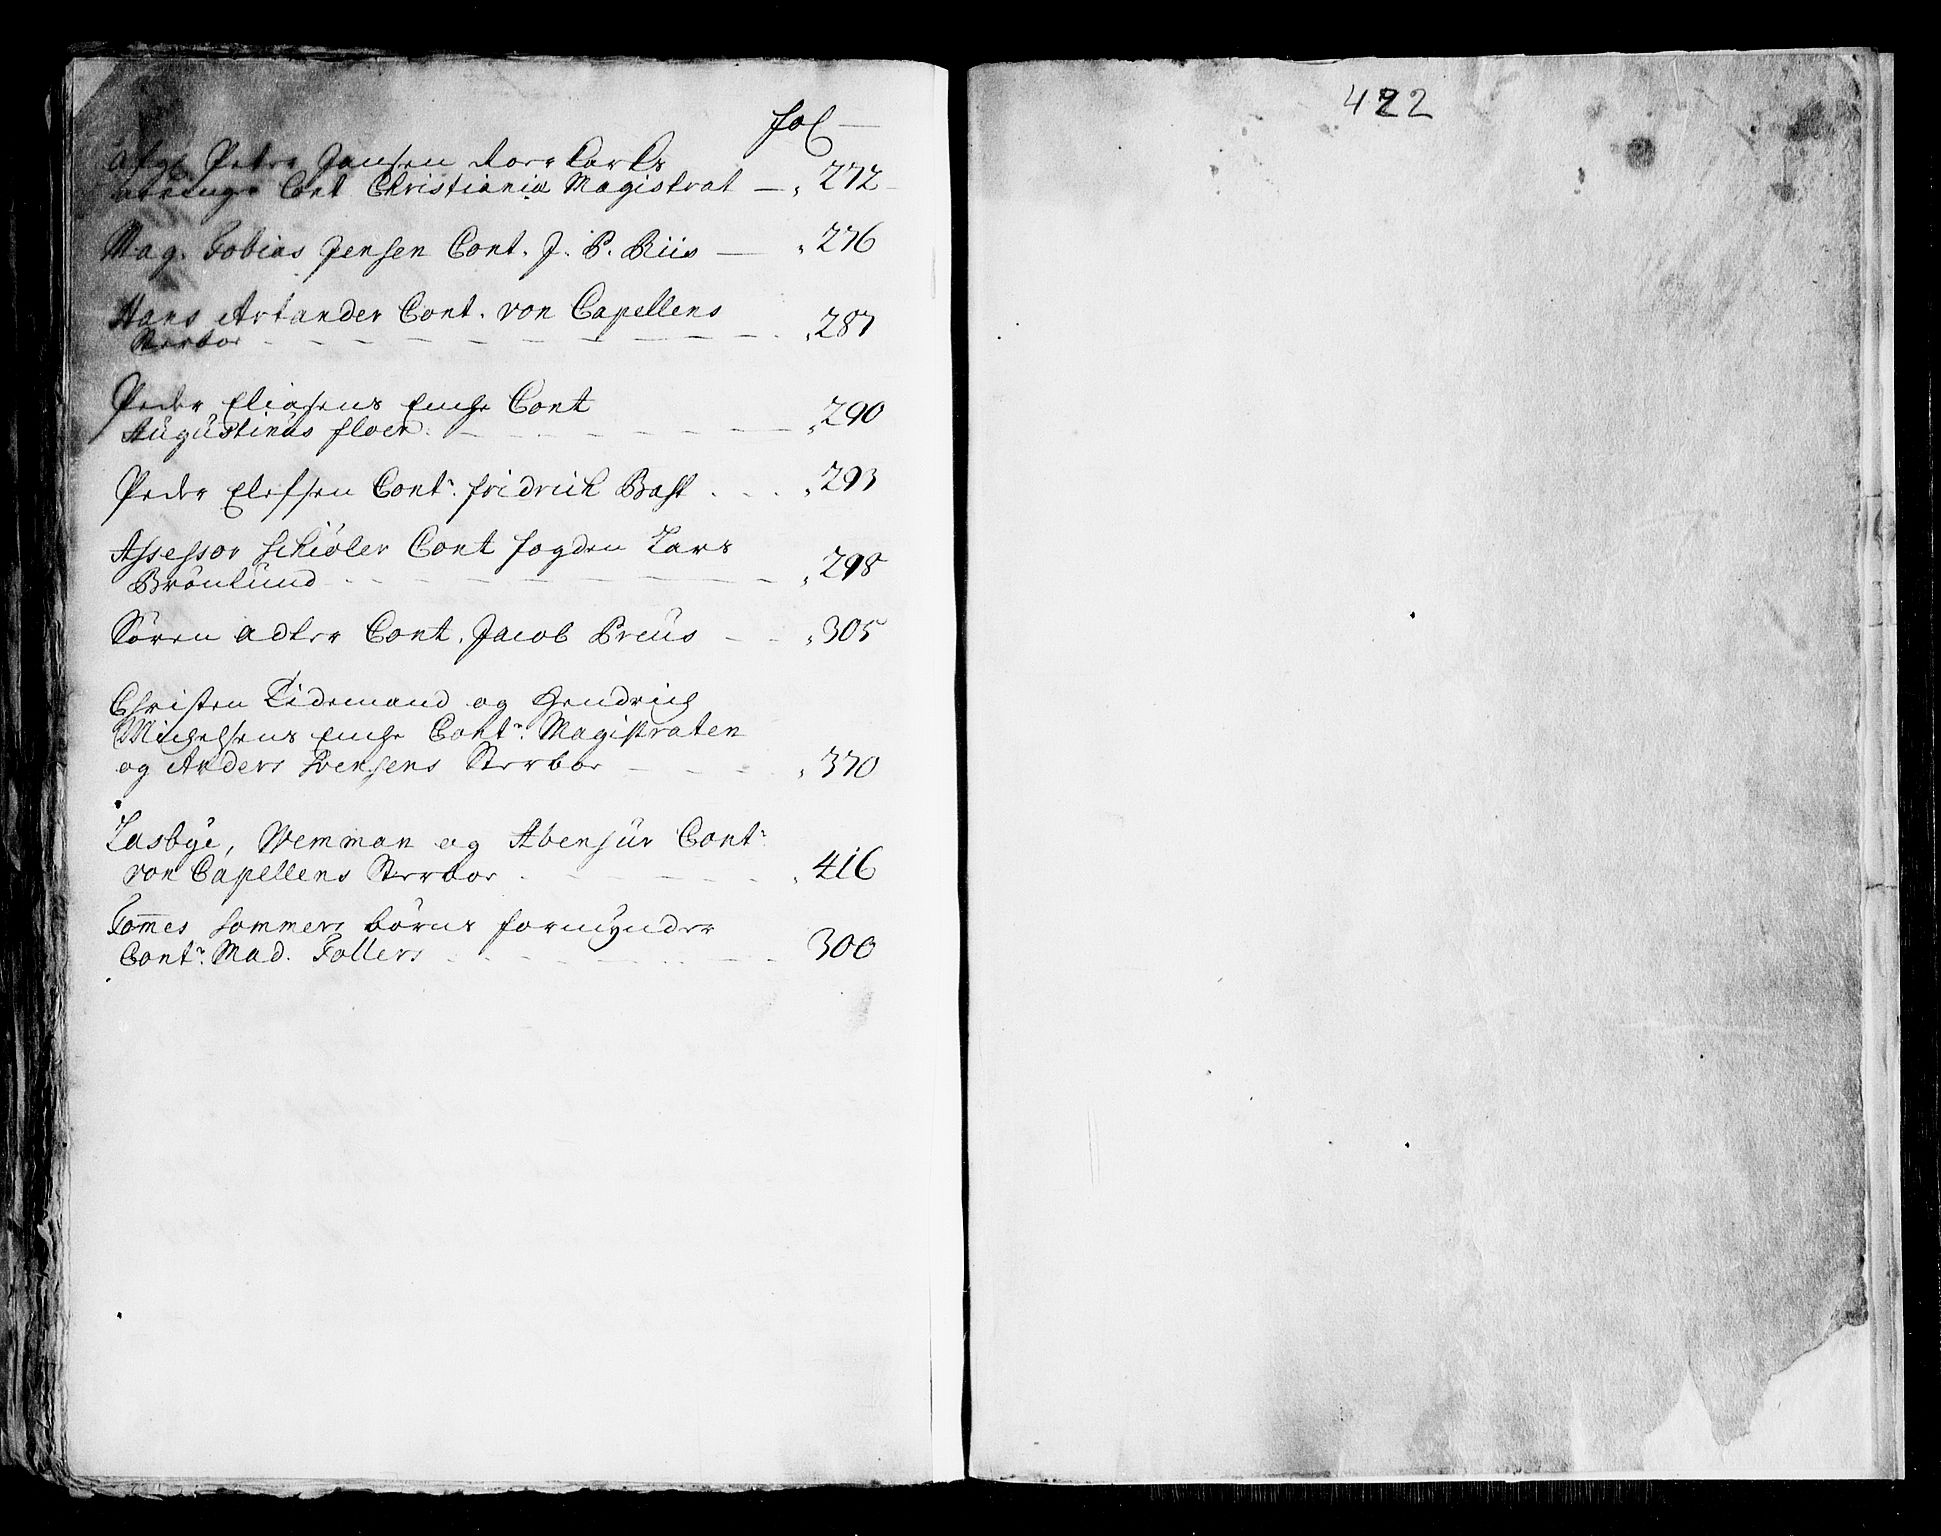 fol
afg: Peder Jansen
Cont Christiania Magistrat — 272
Mag. Tobias Jensen Cont. J. P. Riis — 276
Hans Artander Cont. von Capellens
Sterboe 287
Peder Eliasens Encke Cont
Augustinus floer 290
Peder Elefsen Contr. fridrich Bast 293
Assessor Schiöler Cont fogden Lars
Brönlund 298
Sören adler Cont. Jacob Preus 305
Christen Tidemand og Hendrich
Michelsens Encke Contr: Magistraten
og Anders Svensens Sterboe 370
Lasbye, Wemman og Abensur Contr:
von Capellens Sterboe 416
Tom̅es Sommers börns formynder
Contr: Mad. Tollers 300
422